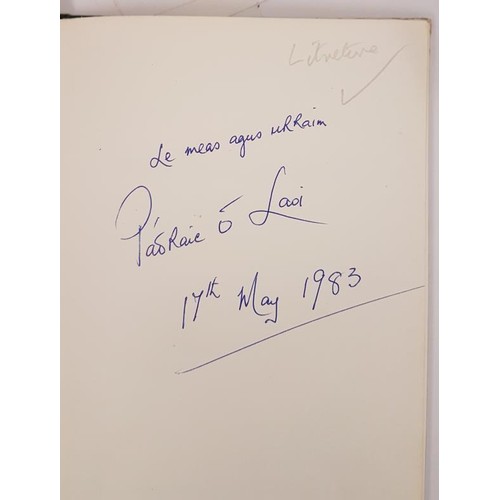 Literature
Le meas agus urraim
Pádraic Ó Laoi
17th May 1983